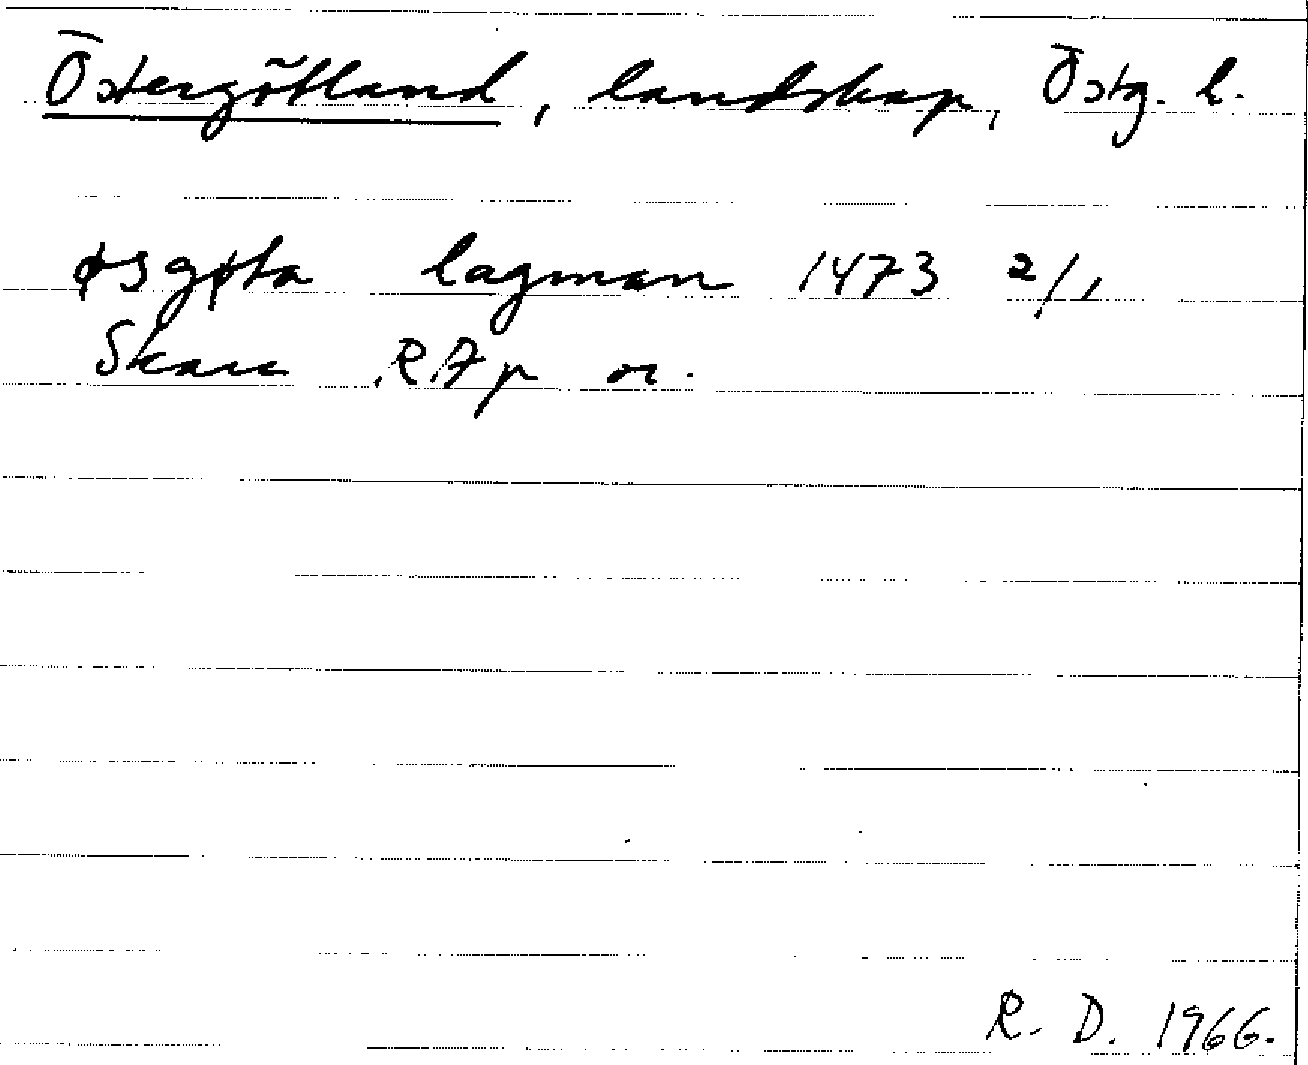 Östergötland, landskap, Östg. l.
øsgøta lagman 1473 2/1
Skara RAp or.
R. D. 1966.